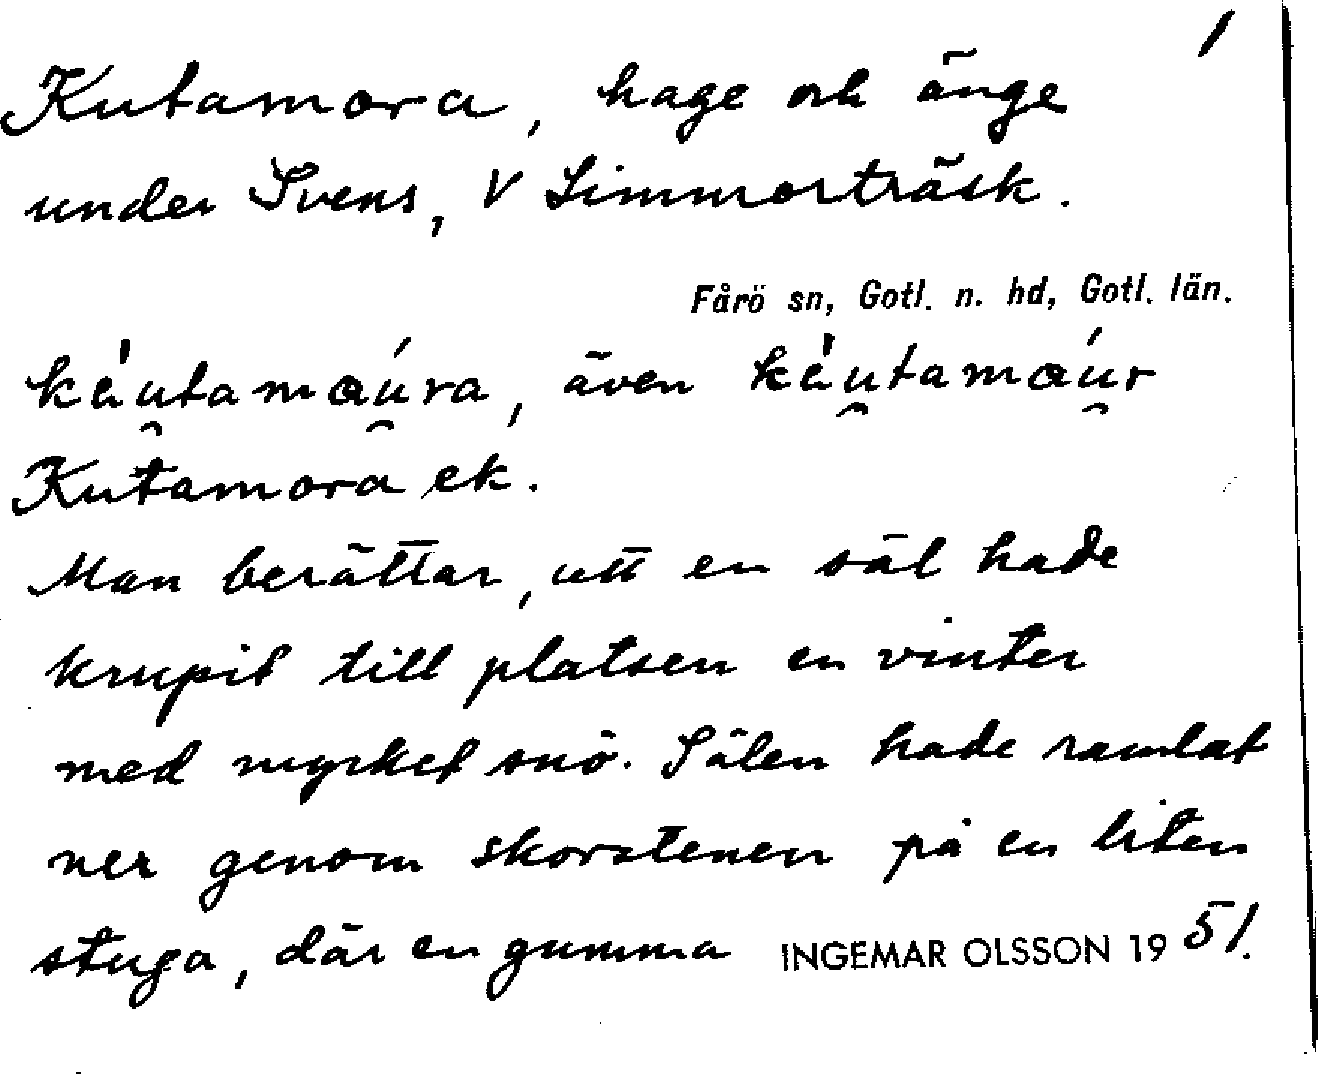 1
Kutamora, hage och änge
under Svens, V Limmorträsk.
Fårö sn, Gotl. n. hd, Gotl. län.
käu̯tamáu̯ra, även käu̯tamáu̯r
Kutamora ek.
Man berättar, att en säl hade
krupit till platsen en vinter
med mycket snö. Sälen hade ramlat
ner genom skorstenen på en liten
stuga, där en gumma INGEMAR OLSSON 1951.